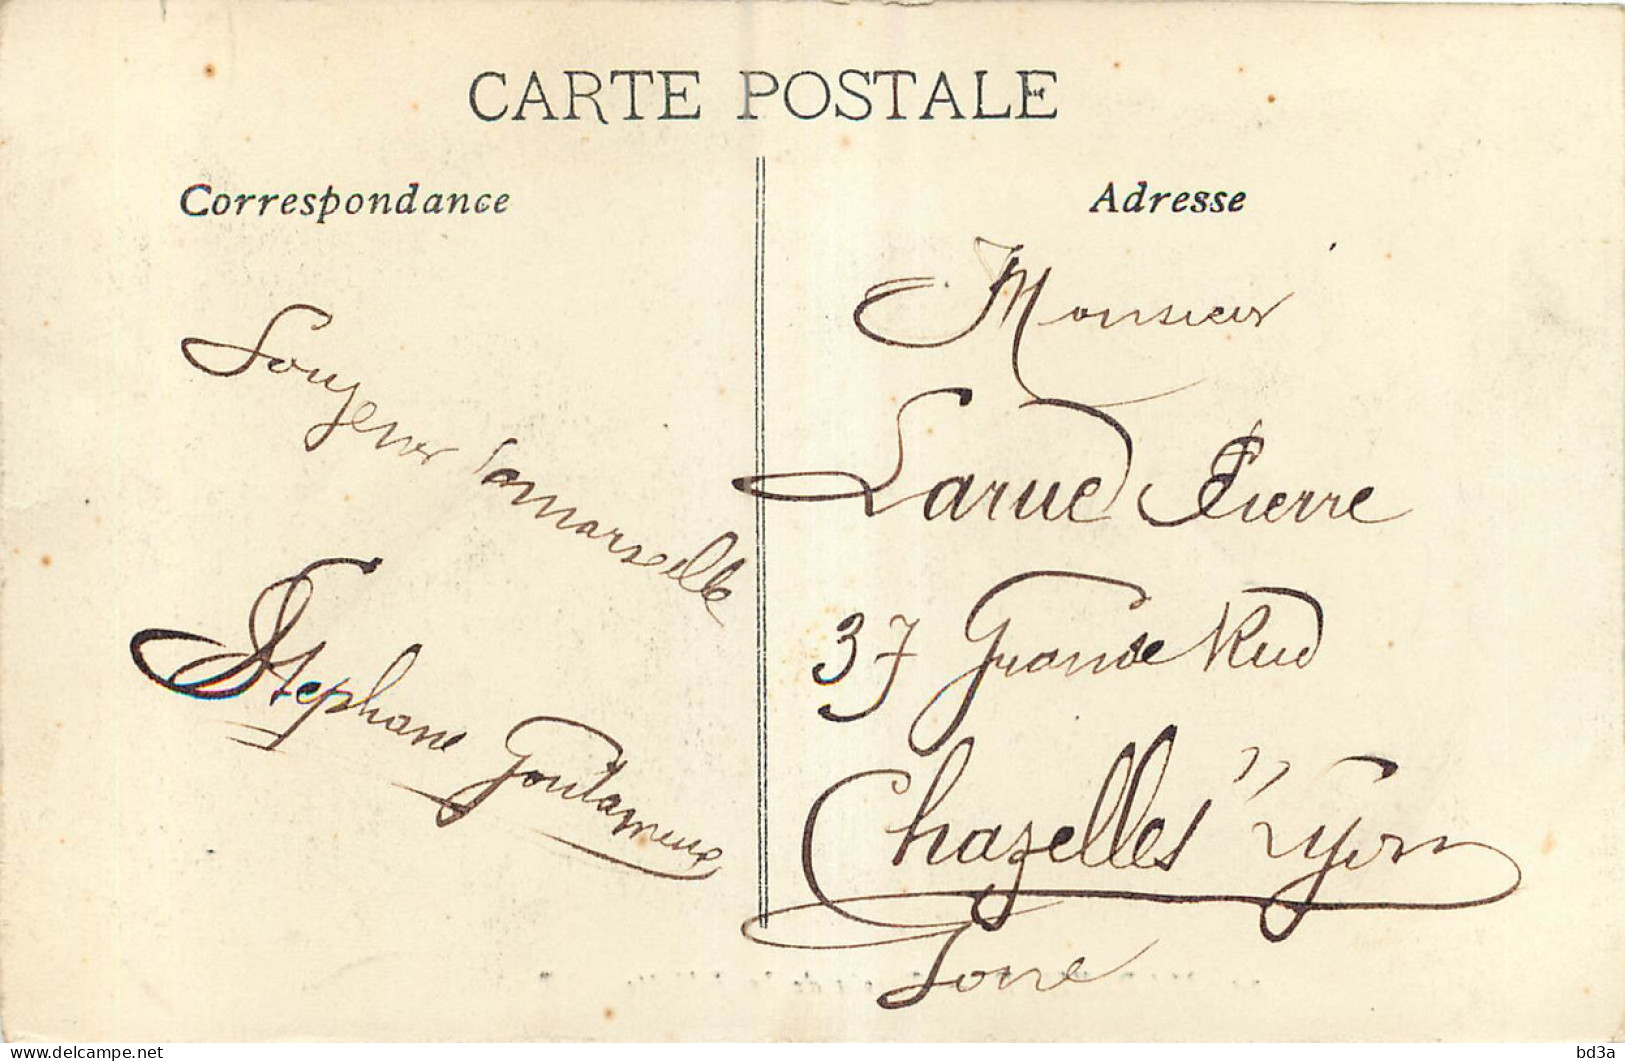 CARTE POSTALE
Correspondance
Adresse
Souvenir
Marseille
Stephane
Monsieur
Larue Pierre
37 Grande Rue
Chazelles " Lyon
Loire
delcampe.net
bd3a